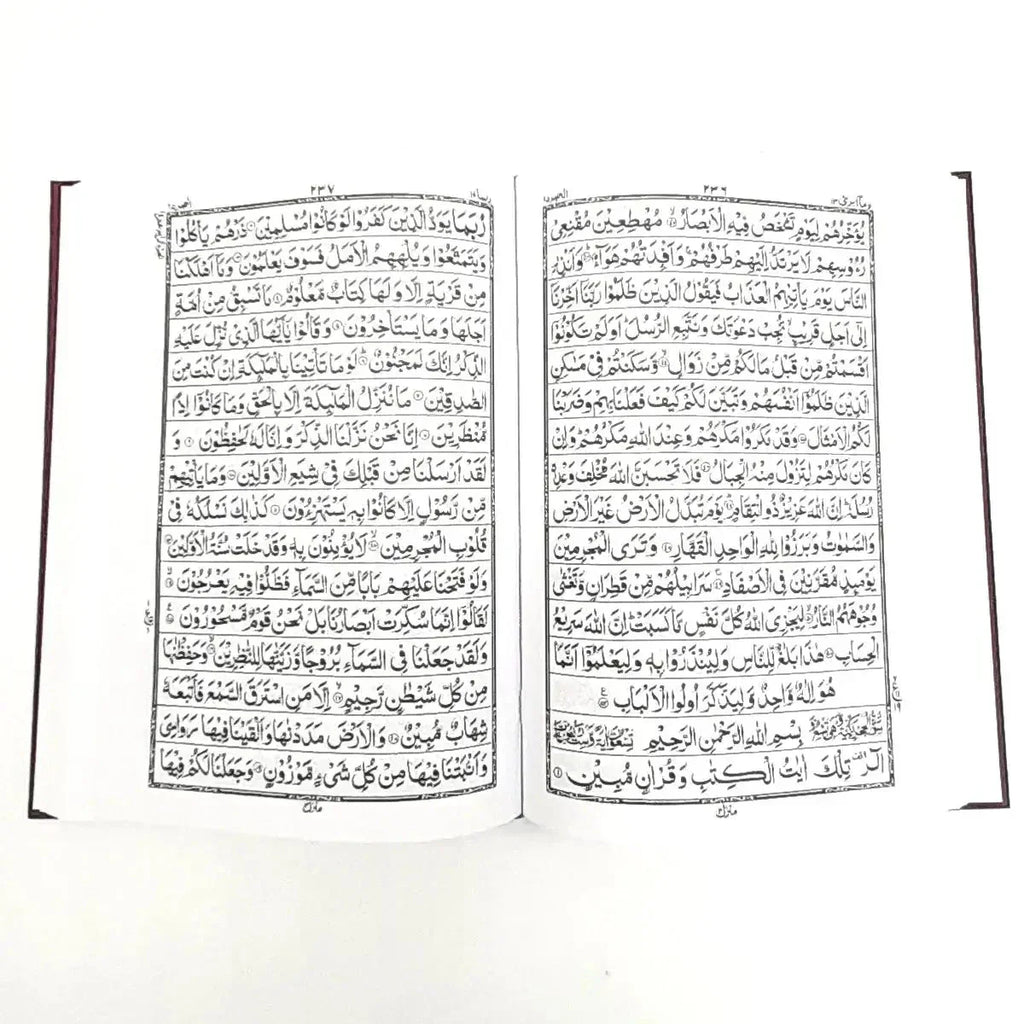 ٢٣٦
يُؤَخِّرُهُمْ لِيَوْمٍ تَشْخَصُ فِيْهِ الْاَبْصَارُ ۙ مُهْطِعِيْنَ مُقْنِعِيْ
رُءُوْسِهِمْ لَا يَرْتَدُّ اِلَيْهِمْ طَرْفُهُمْ ۚ وَاَفْـِٕدَتُهُمْ هَوَآءٌ ؕ وَاَنْذِرِ
النَّاسَ يَوْمَ يَاْتِيْهِمُ الْعَذَابُ فَيَقُوْلُ الَّذِيْنَ ظَلَمُوْا رَبَّنَآ اَخِّرْنَآ
اِلٰٓى اَجَلٍ قَرِيْبٍ ۙ نُّجِبْ دَعْوَتَكَ وَنَتَّبِعِ الرُّسُلَ ؕ اَوَلَمْ تَكُوْنُوْٓا
اَقْسَمْتُمْ مِّنْ قَبْلُ مَا لَكُمْ مِّنْ زَوَالٍ ۙ وَّسَكَنْتُمْ فِيْ مَسٰكِنِ
الَّذِيْنَ ظَلَمُوْٓا اَنْفُسَهُمْ وَتَبَيَّنَ لَكُمْ كَيْفَ فَعَلْنَا بِهِمْ وَضَرَبْنَا
لَكُمُ الْاَمْثَالَ وَقَدْ مَكَرُوْا مَكْرَهُمْ وَعِنْدَ اللّٰهِ مَكْرُهُمْ ؕ وَاِنْ
كَانَ مَكْرُهُمْ لِتَزُوْلَ مِنْهُ الْجِبَالُ فَلَا تَحْسَبَنَّ اللّٰهَ مُخْلِفَ وَعْدِهٖ
رُسُلَهٗ ؕ اِنَّ اللّٰهَ عَزِيْزٌ ذُو انْتِقَامٍ ؕ يَوْمَ تُبَدَّلُ الْاَرْضُ غَيْرَ الْاَرْضِ
وَالسَّمٰوٰتُ وَبَرَزُوْا لِلّٰهِ الْوَاحِدِ الْقَهَّارِ وَتَرَى الْمُجْرِمِيْنَ
يَوْمَىِٕذٍ مُّقَرَّنِيْنَ فِي الْاَصْفَادِ ۚ سَرَابِيْلُهُمْ مِّنْ قَطِرَانٍ وَّتَغْشٰى
وُجُوْهَهُمُ النَّارُ ۙ لِيَجْزِيَ اللّٰهُ كُلَّ نَفْسٍ مَّا كَسَبَتْ ؕ اِنَّ اللّٰهَ سَرِيْعُ
الْحِسَابِ هٰذَا بَلٰغٌ لِّلنَّاسِ وَلِيُنْذَرُوْا بِهٖ وَلِيَعْلَمُوْٓا اَنَّمَا
هُوَ اِلٰهٌ وَّاحِدٌ وَّلِيَذَّكَّرَ اُولُوا الْاَلْبَابِ
بِسْمِ اللّٰهِ الرَّحْمٰنِ الرَّحِيْمِ
الٓرٰ تِلْكَ اٰيٰتُ الْكِتٰبِ وَقُرْاٰنٍ مُّبِيْنٍ ۱
٢٣٧
رُبَمَا يَوَدُّ الَّذِيْنَ كَفَرُوْا لَوْ كَانُوْا مُسْلِمِيْنَ ذَرْهُمْ يَاْكُلُوْا
وَيَتَمَتَّعُوْا وَيُلْهِهِمُ الْاَمَلُ فَسَوْفَ يَعْلَمُوْنَ وَمَآ اَهْلَكْنَا
مِنْ قَرْيَةٍ اِلَّا وَلَهَا كِتَابٌ مَّعْلُوْمٌ مَا تَسْبِقُ مِنْ اُمَّةٍ
اَجَلَهَا وَمَا يَسْتَاْخِرُوْنَ وَقَالُوْا يٰٓاَيُّهَا الَّذِيْ نُزِّلَ عَلَيْهِ
الذِّكْرُ اِنَّكَ لَمَجْنُوْنٌ ؕ لَوْ مَا تَاْتِيْنَا بِالْمَلٰٓىِٕكَةِ اِنْ كُنْتَ مِنَ
الصّٰدِقِيْنَ مَا نُنَزِّلُ الْمَلٰٓىِٕكَةَ اِلَّا بِالْحَقِّ وَمَا كَانُوْٓا اِذًا
مُّنْظَرِيْنَ اِنَّا نَحْنُ نَزَّلْنَا الذِّكْرَ وَاِنَّا لَهٗ لَحٰفِظُوْنَ وَ
لَقَدْ اَرْسَلْنَا مِنْ قَبْلِكَ فِيْ شِيَعِ الْاَوَّلِيْنَ وَمَا يَاْتِيْهِمْ
مِّنْ رَّسُوْلٍ اِلَّا كَانُوْا بِهٖ يَسْتَهْزِءُوْنَ كَذٰلِكَ نَسْلُكُهٗ فِيْ
قُلُوْبِ الْمُجْرِمِيْنَ ۙ لَا يُؤْمِنُوْنَ بِهٖ وَقَدْ خَلَتْ سُنَّةُ الْاَوَّلِيْنَ
وَلَوْ فَتَحْنَا عَلَيْهِمْ بَابًا مِّنَ السَّمَآءِ فَظَلُّوْا فِيْهِ يَعْرُجُوْنَ ۙ
لَقَالُوْٓا اِنَّمَا سُكِّرَتْ اَبْصَارُنَا بَلْ نَحْنُ قَوْمٌ مَّسْحُوْرُوْنَ
وَلَقَدْ جَعَلْنَا فِي السَّمَآءِ بُرُوْجًا وَّزَيَّنّٰهَا لِلنّٰظِرِيْنَ ۙ وَحَفِظْنٰهَا
مِنْ كُلِّ شَيْطٰنٍ رَّجِيْمٍ ۙ اِلَّا مَنِ اسْتَرَقَ السَّمْعَ فَاَتْبَعَهٗ
شِهَابٌ مُّبِيْنٌ وَالْاَرْضَ مَدَدْنٰهَا وَاَلْقَيْنَا فِيْهَا رَوَاسِيَ
وَاَنْۢبَتْنَا فِيْهَا مِنْ كُلِّ شَيْءٍ مَّوْزُوْنٍ وَجَعَلْنَا لَكُمْ فِيْهَا